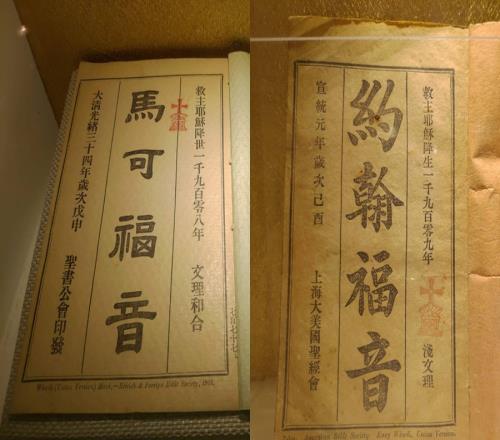 救主耶穌降世一千九百零八年 文理和合
馬可福音
大清光緒三十四年歲次戊申 聖書公會印發
Wenli (Union Version) Mark.—British & Foreign Bible Society, 1908.
救主耶穌降生一千九百零九年 淺文理
約翰福音
宣統元年歲次己酉 上海大美國聖經會
John. American Bible Society. Easy Wenli, Union Version.